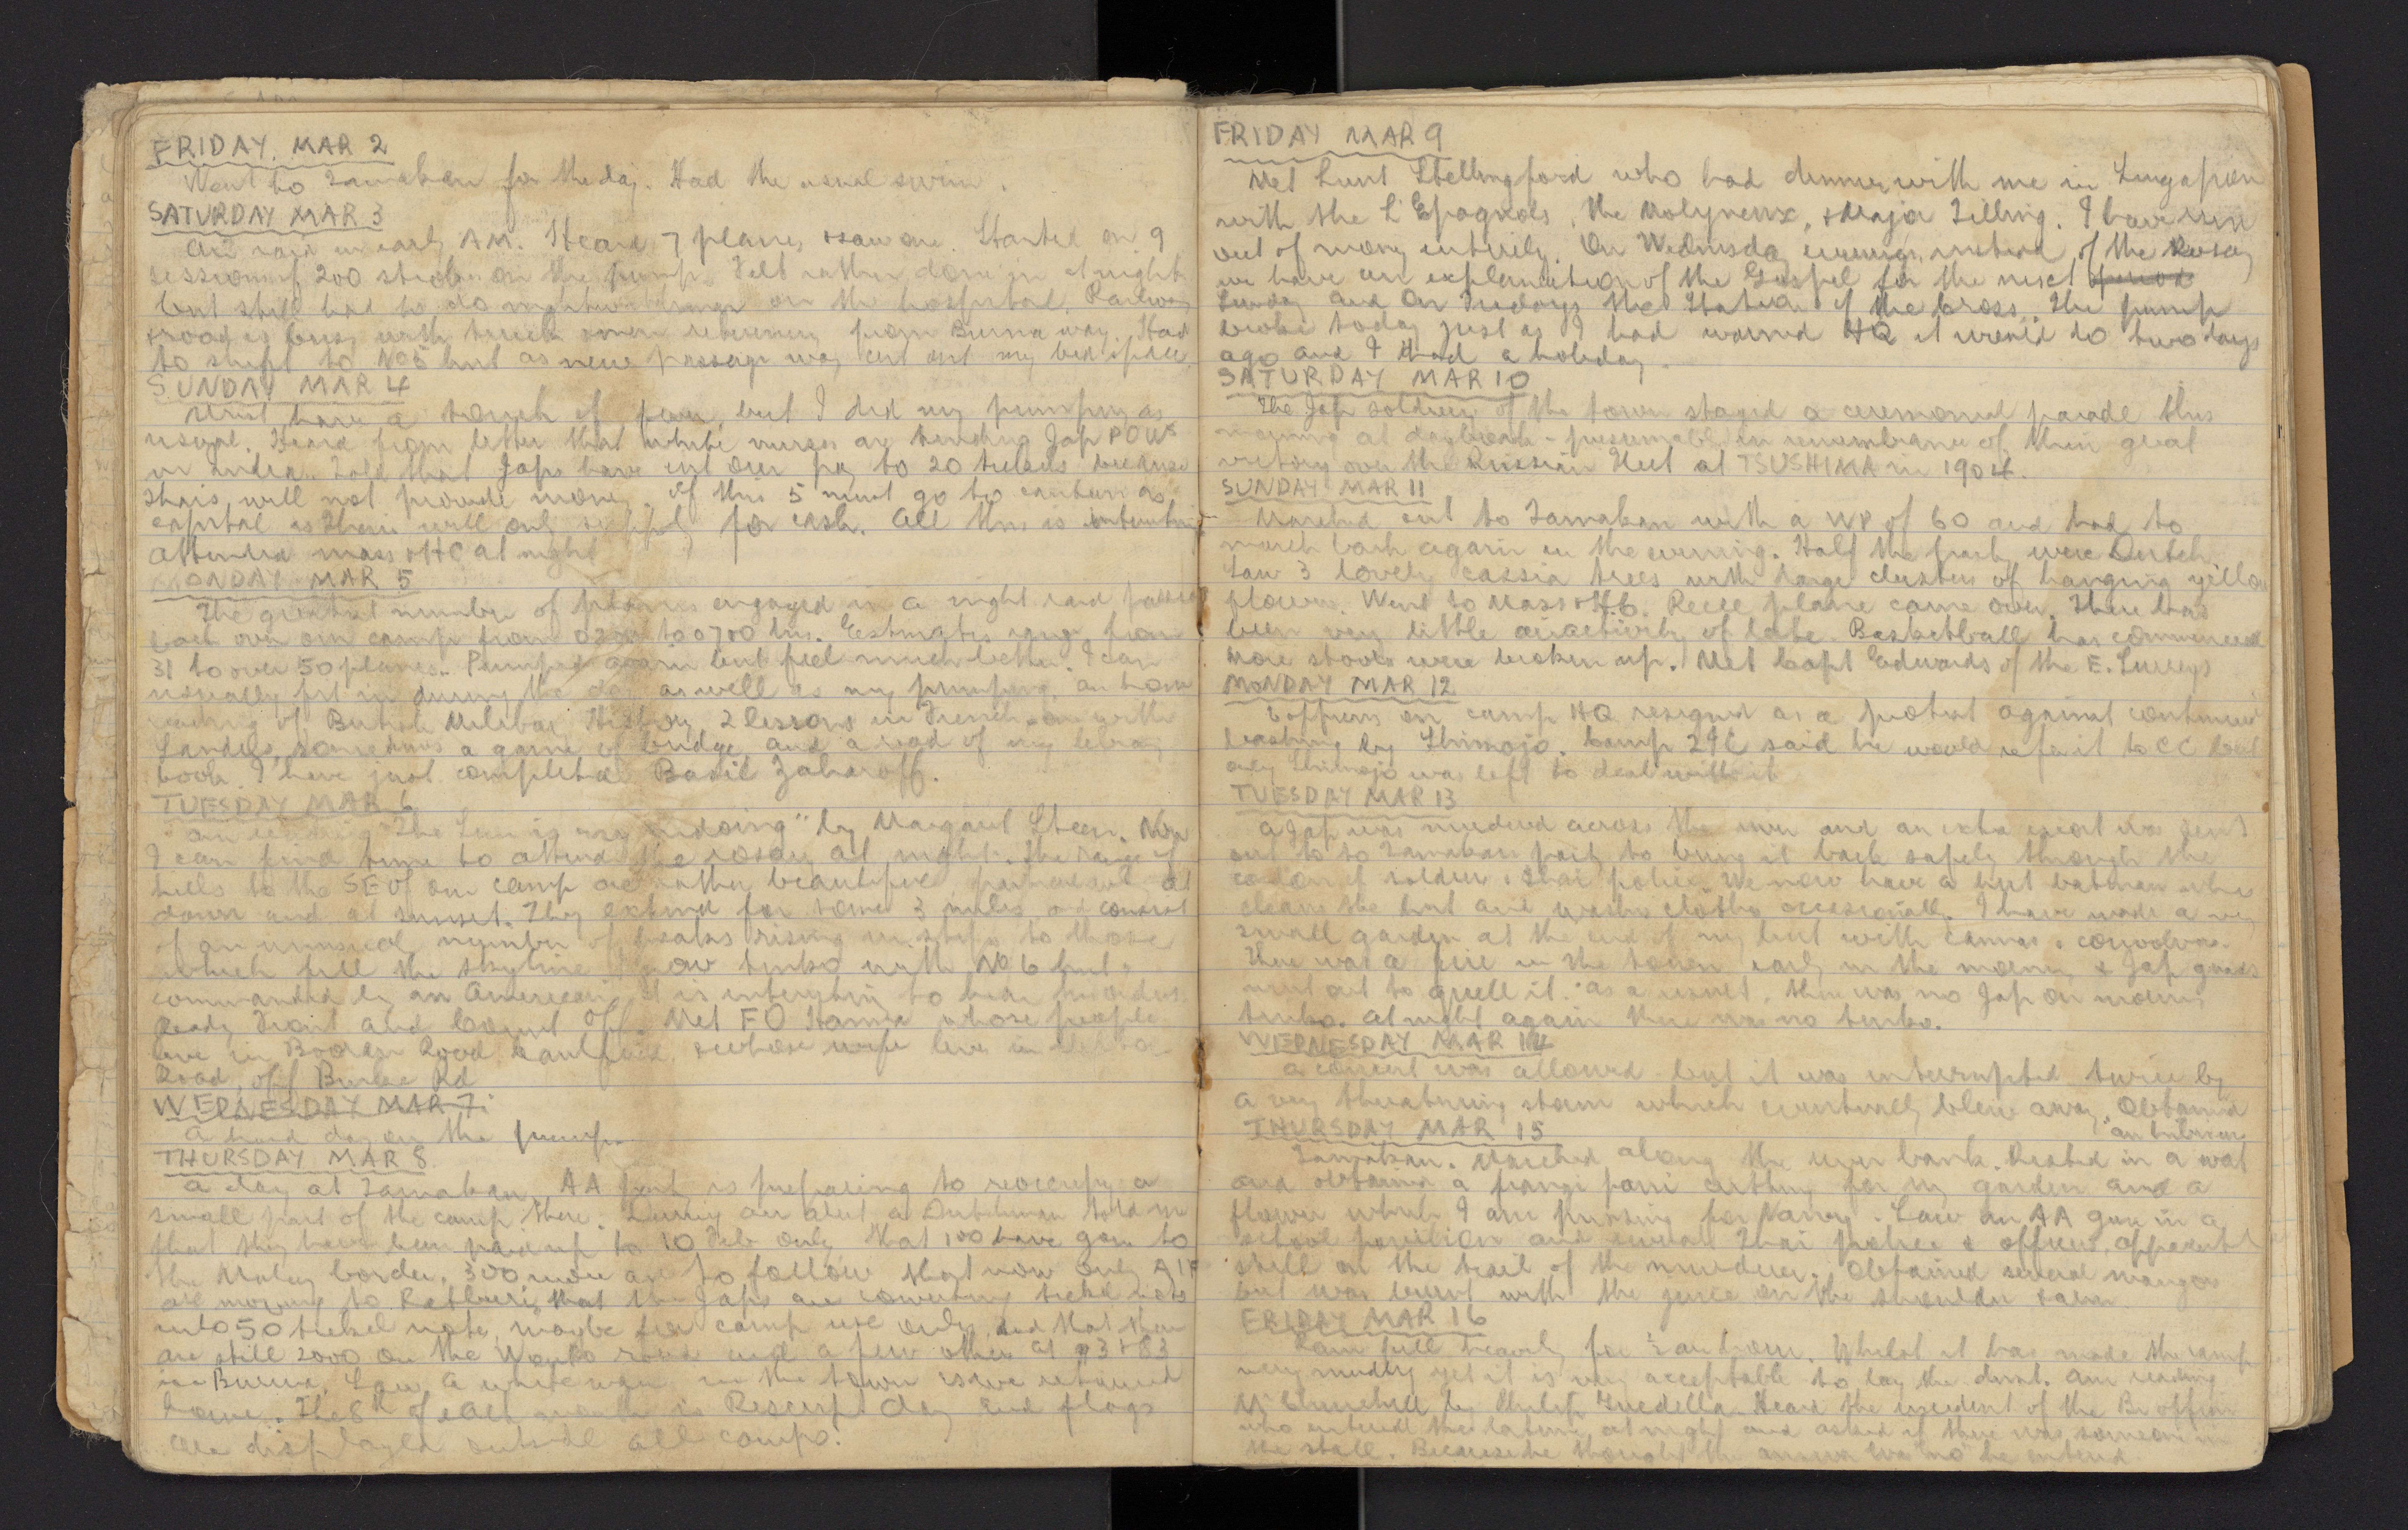 FRIDAY, MAR 2
Went to Tamakan for the day. Had the usual swim.
SATURDAY MAR 3
Air raid in early AM. Heard 7 planes & saw one. Started on 9
sessions of 200 strokes on the pump. Felt rather done in at night
but still had to do nightwatchman on the hospital. Railway
& road is busy with trucks & men returning from Burma way. Had
to shift to No5 hut as new passage way cut out my bed space.
SUNDAY MAR 4
Must have a touch of fever, but I did my pumping as
usual. Heard from letter that white nurses are tending Jap POWs
in India. Told that Japs have cut our pay to 20 tickels because
Thais will not provide money. Of this 5 must go to canteen as
capital as Thais will only supply for cash. All this is
attended mass & HC at night
MONDAY MAR 5
The greatest number of planes engaged in a night raid passed
back over our camp from to 0700 hrs. Estimates range from
31 to over 50 planes. Pumped again but feel much better. I can
usually put in during the day as well as my pumping, an hour
reading of British Military History, 2 lessons in French, one with
Landels, sometimes a game of bridge, and a read of my library
book. I have just completed Basil Zaharoff.
TUESDAY MAR 6
am reading "The Sun is my undoing" by Margaret Steen. Now
I can find time to attend the rosary at night. The range of
hills to the SE of our camp are rather beautiful, particularly at
dawn and at sunset. They extend for some 3 miles and consist
of an unusual number of peaks rising in steps to those
which fill the skyline. I now tenko with No 6 hut,
commanded by an American. It is interesting to hear his orders
Ready Front and Count Off. Met FO Hanna whose people
live in Booran Road, Caulfield, & whose wife lives in
Road, off Burke Rd
WEDNESDAY MAR 7.
A hard day on the pump.
THURSDAY MAR 8
A day at Tamakan. AA party is preparing to reoccupy a
small part of the camp there. During an alert a Dutchman told me
that they have been paid up to 10 Feb only, that 100 have gone to
the Malay border, 300 more are to follow, that now only AIF
are moving to Ratburi, that the Japs are converting tickel notes
into 50 tickel note, maybe for camp use only, and that there
are still 2000 on the road and a few others at &83
in Burma. Saw a white man in the town as we returned
home. The 8th of each month is Rescript day and flags
are displayed outside all camps.
FRIDAY MAR 9
Met Lieut Stellingford who had dinner with me in Singapore
with the L'Epagnols, the Molyneux, & Major Tilling. I have run
out of money entirely. On Wednesday evenings, instead of the Rosary
we have an explanation of the Gospel for the next
Sunday and on Fridays the Stations of the Cross. The pump
broke today just as I had warned HQ it would do two days
ago and I had a holiday.
SATURDAY MAR 10
The Jap soldiers of the town staged a ceremonial parade this
morning at daybreak - presumably in remembrance of their great
victory over the Russian Fleet at TSUSHIMA in 1904.
SUNDAY MAR 11
Marched out to Tamakan with a WP of 60 and had to
march back again in the evening. Half the party were Dutch.
Saw 3 lovely cassia trees with large clusters of hanging yellow
flowers. Went to Mass & H.C. Recce plane came over. There has
been very little air activity of late. Basketball has commenced
More stools were broken up. Met Capt Edwards of the E. Surreys
MONDAY MAR 12
6 officers on camp HQ resigned as a protest against continued
bashing by Shimojo. Camp 2IC said he would refer it to CC but
only Shimojo was left to deal with it
TUESDAY MAR 13
A Jap was murdered across the river and an extra escort was sent
out to to Tamakan party to bring it back safely through the
cordon of soldiers & Thai police. We now have a hut batman who
cleans the hut and washes clothes occasionally. I have made a very
small garden at the end of my hut with cannas & convolvus.
There was a fire in the town early in the morning & Jap guards
went out to quell it. As a result, there was no Jap on morning
tenko. At night again there was no tenko.
WEDNESDAY MAR 14
A concert was allowed but it was interrupted twice by
a very threatening storm which eventually blew away. Obtained
THURSDAY MAR 15
Tamakan. Marched along the river bank. Rested in a wat
and obtained a frangi panni cutting for my garden and a
flower which I am pressing for Nancy. Saw an AA gun in a
school pavilion and several Thai police & officers, apparently
still on the trail of the murderer. Obtained several mangoes
but was burnt with the juice on the shoulder & arm
FRIDAY MAR 16
Rain fell heavily for ½ an hour. Whilst it has made the camp
very muddy yet it is very acceptable to lay the dust. Am reading
Mr Churchill by Philip Guedella. Heard the incident of the Br officer
who entered the latrine at night and asked if there was someone in
the stall. Because he thought the answer was no he entered